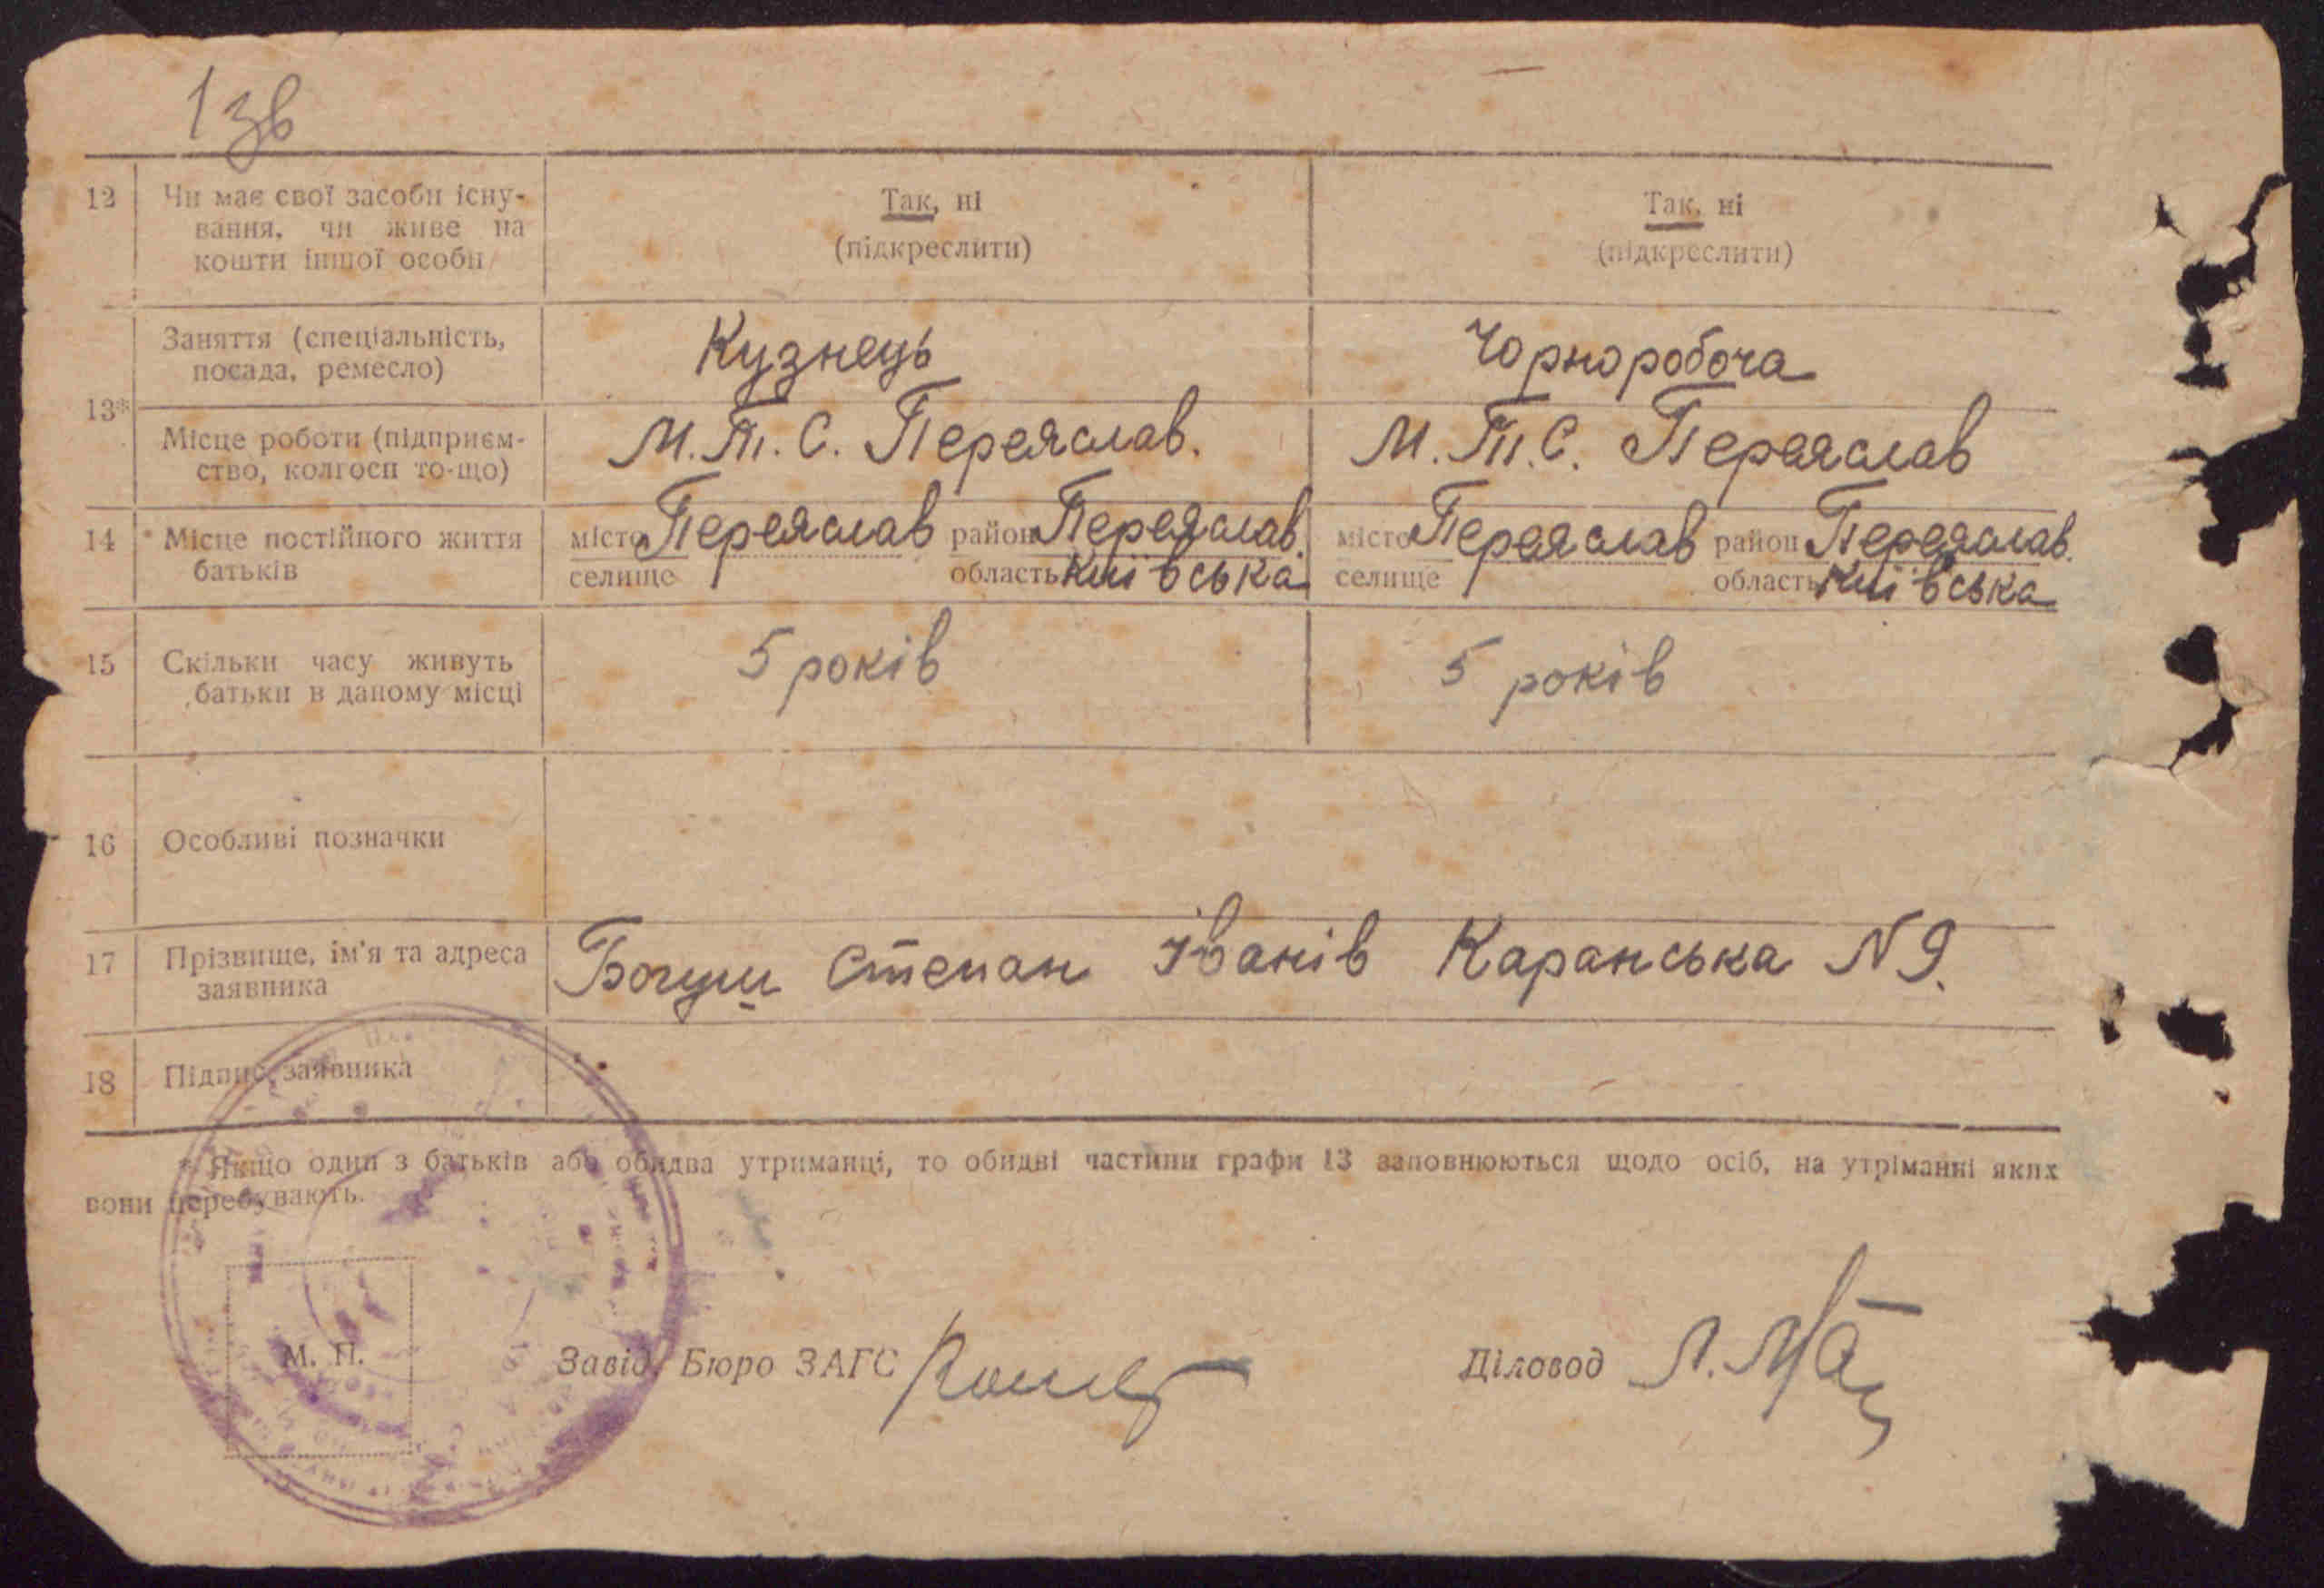 1зв
12 Чи має свої засоби існу- Так, ні Так, ні
вання, чи живе на (підкреслити) (підкреслити)
кошти іншої особи
13* Заняття (спеціальність, Кузнець Чорноробоча
посада, ремесло)
Місце роботи (підприєм- М.Т.С. Переяслав. М.Т.С. Переяслав
ство, колгосп то-що)
14 Місце постійного життя місто Переяслав район Переяслав. місто Переяслав район Переяслав.
батьків селище область Київська селище область Київська
15 Скільки часу живуть 5 років 5 років
батьки в даному місці
16 Особливі позначки
17 Прізвище, ім'я та адреса Богуш Степан Іванів Каранська N 9.
заявника
18 Підпис заявника
* Якщо один з батьків або обидва утриманці, то обидві частини графи 13 заповнюються щодо осіб, на утріманні яких
вони перебувають.
М. П. Завід. Бюро ЗАГС Діловод